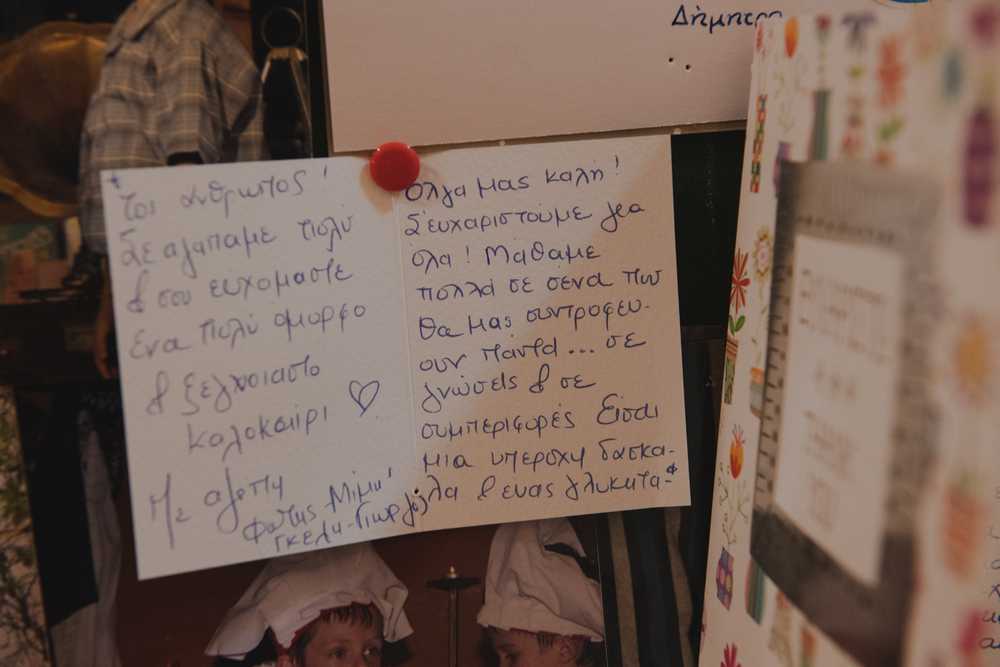 Δήμητρα
Όλγα μας καλή!
Σ'ευχαριστούμε για
όλα! Μάθαμε
πολλά σε σένα που
θα μας συντροφεύ-
ουν πάντα... σε
γνώσεις & σε
συμπεριφορές Είσαι
μια υπέροχη δασκά-
λα & ένας γλυκύτα-*
*τοι άνθρωπος!
Σε αγαπάμε πολύ
& σου ευχόμαστε
ένα πολύ όμορφο
& ξέγνοιαστο
καλοκαίρι ♡
Με αγάπη
Φώτης Μιμή
Γκέλη-Γιώργος